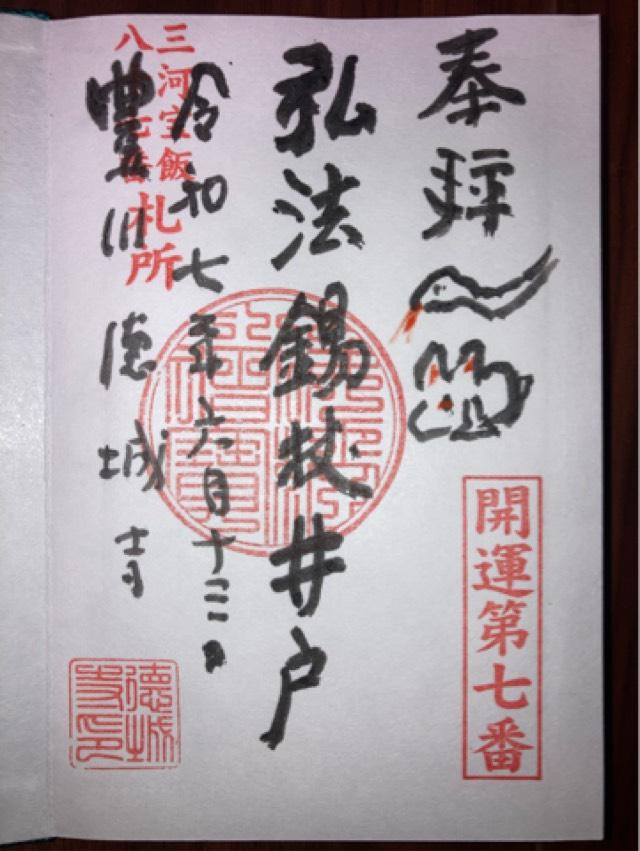 奉拝
開運第七番
弘法錫杖井戸
令和七年六月十三日
三河宝飯
八七番札所
豊川徳城寺
徳城寺印